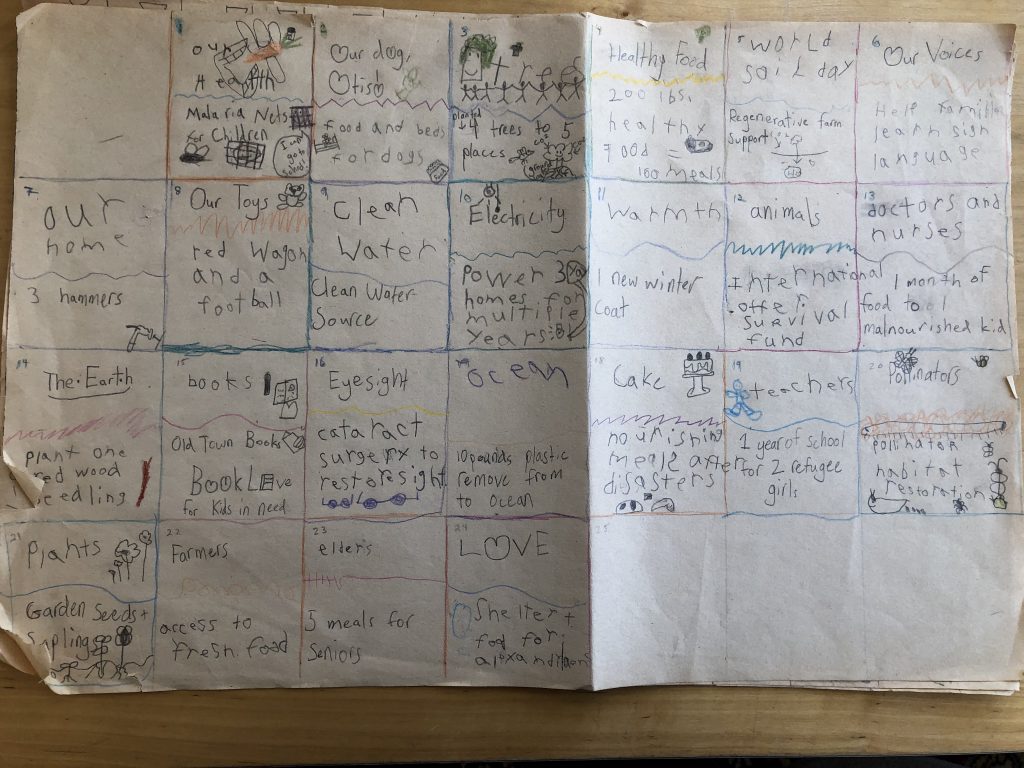 1
our
Health
Malaria Nets
for Children
I can
go to
school!
2
Our dog,
Otis
food and beds
for dogs
3
trees
planted
4 trees to 5
places
4
Healthy Food
200 lbs.
healthy
food =
100 meals
5
world
soil day
Regenerative farm
Support
6
Our Voices
Help families
learn sign
language
7
our
home
3 hammers
8
Our Toys
red Wagon
and a
football
9
Clean
Water
Clean Water
Source
10
Electricity
Power 3
homes for
multiple
years
11
warmth
1 new winter
coat
12
animals
International
survival
fund
13
doctors and
nurses
1 month of
food to 1
malnourished kid
14
The Earth
plant one
red wood
seedling
15
books
Old Town Books
Book Love
for Kids in need
16
Eyesight
cataract
surgery to
restore sight
17
ocean
10 pounds plastic
remove from
to ocean
18
Cake
nourishing
meals after
disasters
19
teachers
1 year of school
for 2 refugee
girls
20
Pollinators
pollinater
habitat
restoration
21
Plants
Garden Seeds +
Sapling
22
Farmers
access to
fresh food
23
elders
5 meals for
Seniors
24
LOVE
Shelter +
food for
25